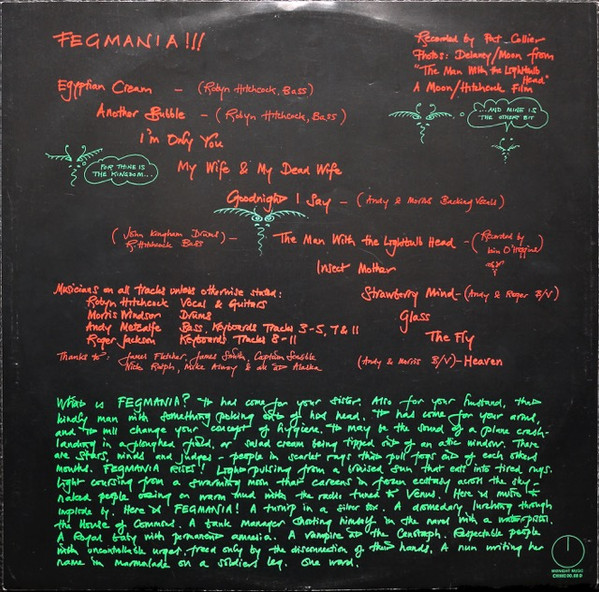 FEGMANIA!!!
Recorded by Pat Collier
Photos: Delaney/Moon from
"The Man With the Lightbulb
Head"
A Moon/Hitchcock Film
Egyptian Cream - (Robyn Hitchcock, Bass)
Another Bubble - (Robyn Hitchcock, Bass)
...AND MINE IS
THE OTHER BIT
I'm Only You
FOR THINE IS
THE KINGDOM...
My Wife & My Dead Wife
Goodnight I Say - (Andy & Morris Backing Vocals)
(John Kingham Drums)
R. Hitchcock Bass
- The Man With the Lightbulb Head - (Recorded by
Iain O'Higgins)
Insect Mother
Musicians on all Tracks unless otherwise stated:
Robyn Hitchcock Vocal & Guitars
Morris Windsor Drums
Andy Metcalfe Bass, Keyboards Tracks 3-5, 7 & 11
Roger Jackson Keyboards Tracks 8-11
Strawberry Mind - (Andy & Roger B/V)
Glass
The Fly
(Andy & Morris B/V) - Heaven
Thanks to: James Fletcher, James Smith, Captain Sensible
Nick Ralph, Mike Alway & all at Alaska
What is FEGMANIA? It had come for your sister. Also for your husband, that
kindly man with something poking out of his head. It had come for your aunt,
and it will change your concept of hygiene. It may be the sound of a plane crash-
landing in a ploughed field, or salad cream being tipped out of an attic window. There
are stars, minds and judges - people in scarlet rags that pull tops out of each others
mouths. FEGMANIA RISES! Light pulsing from a bruised sun that eat into tired rags.
Light coursing from a swarming moon that careens in frozen ecstasy across the sky -
naked people on warm mud with the radio tuned to Venus. Here is music to
implode by. Here is FEGMANIA! A turnip in a silver box. A dromedary lurching through
the House of Commons. A bank manager shooting himself in the navel with a waterpistol.
A Royal baby with permanent amnesia. A vampire at the Cenotaph. Respectable people
with uncontrollable urges, freed only by the disconnection of their hands. A nun writing her
name in marmalade on a soldiers leg. One word.
MIDNIGHT MUSIC
CHIME 00.08 D